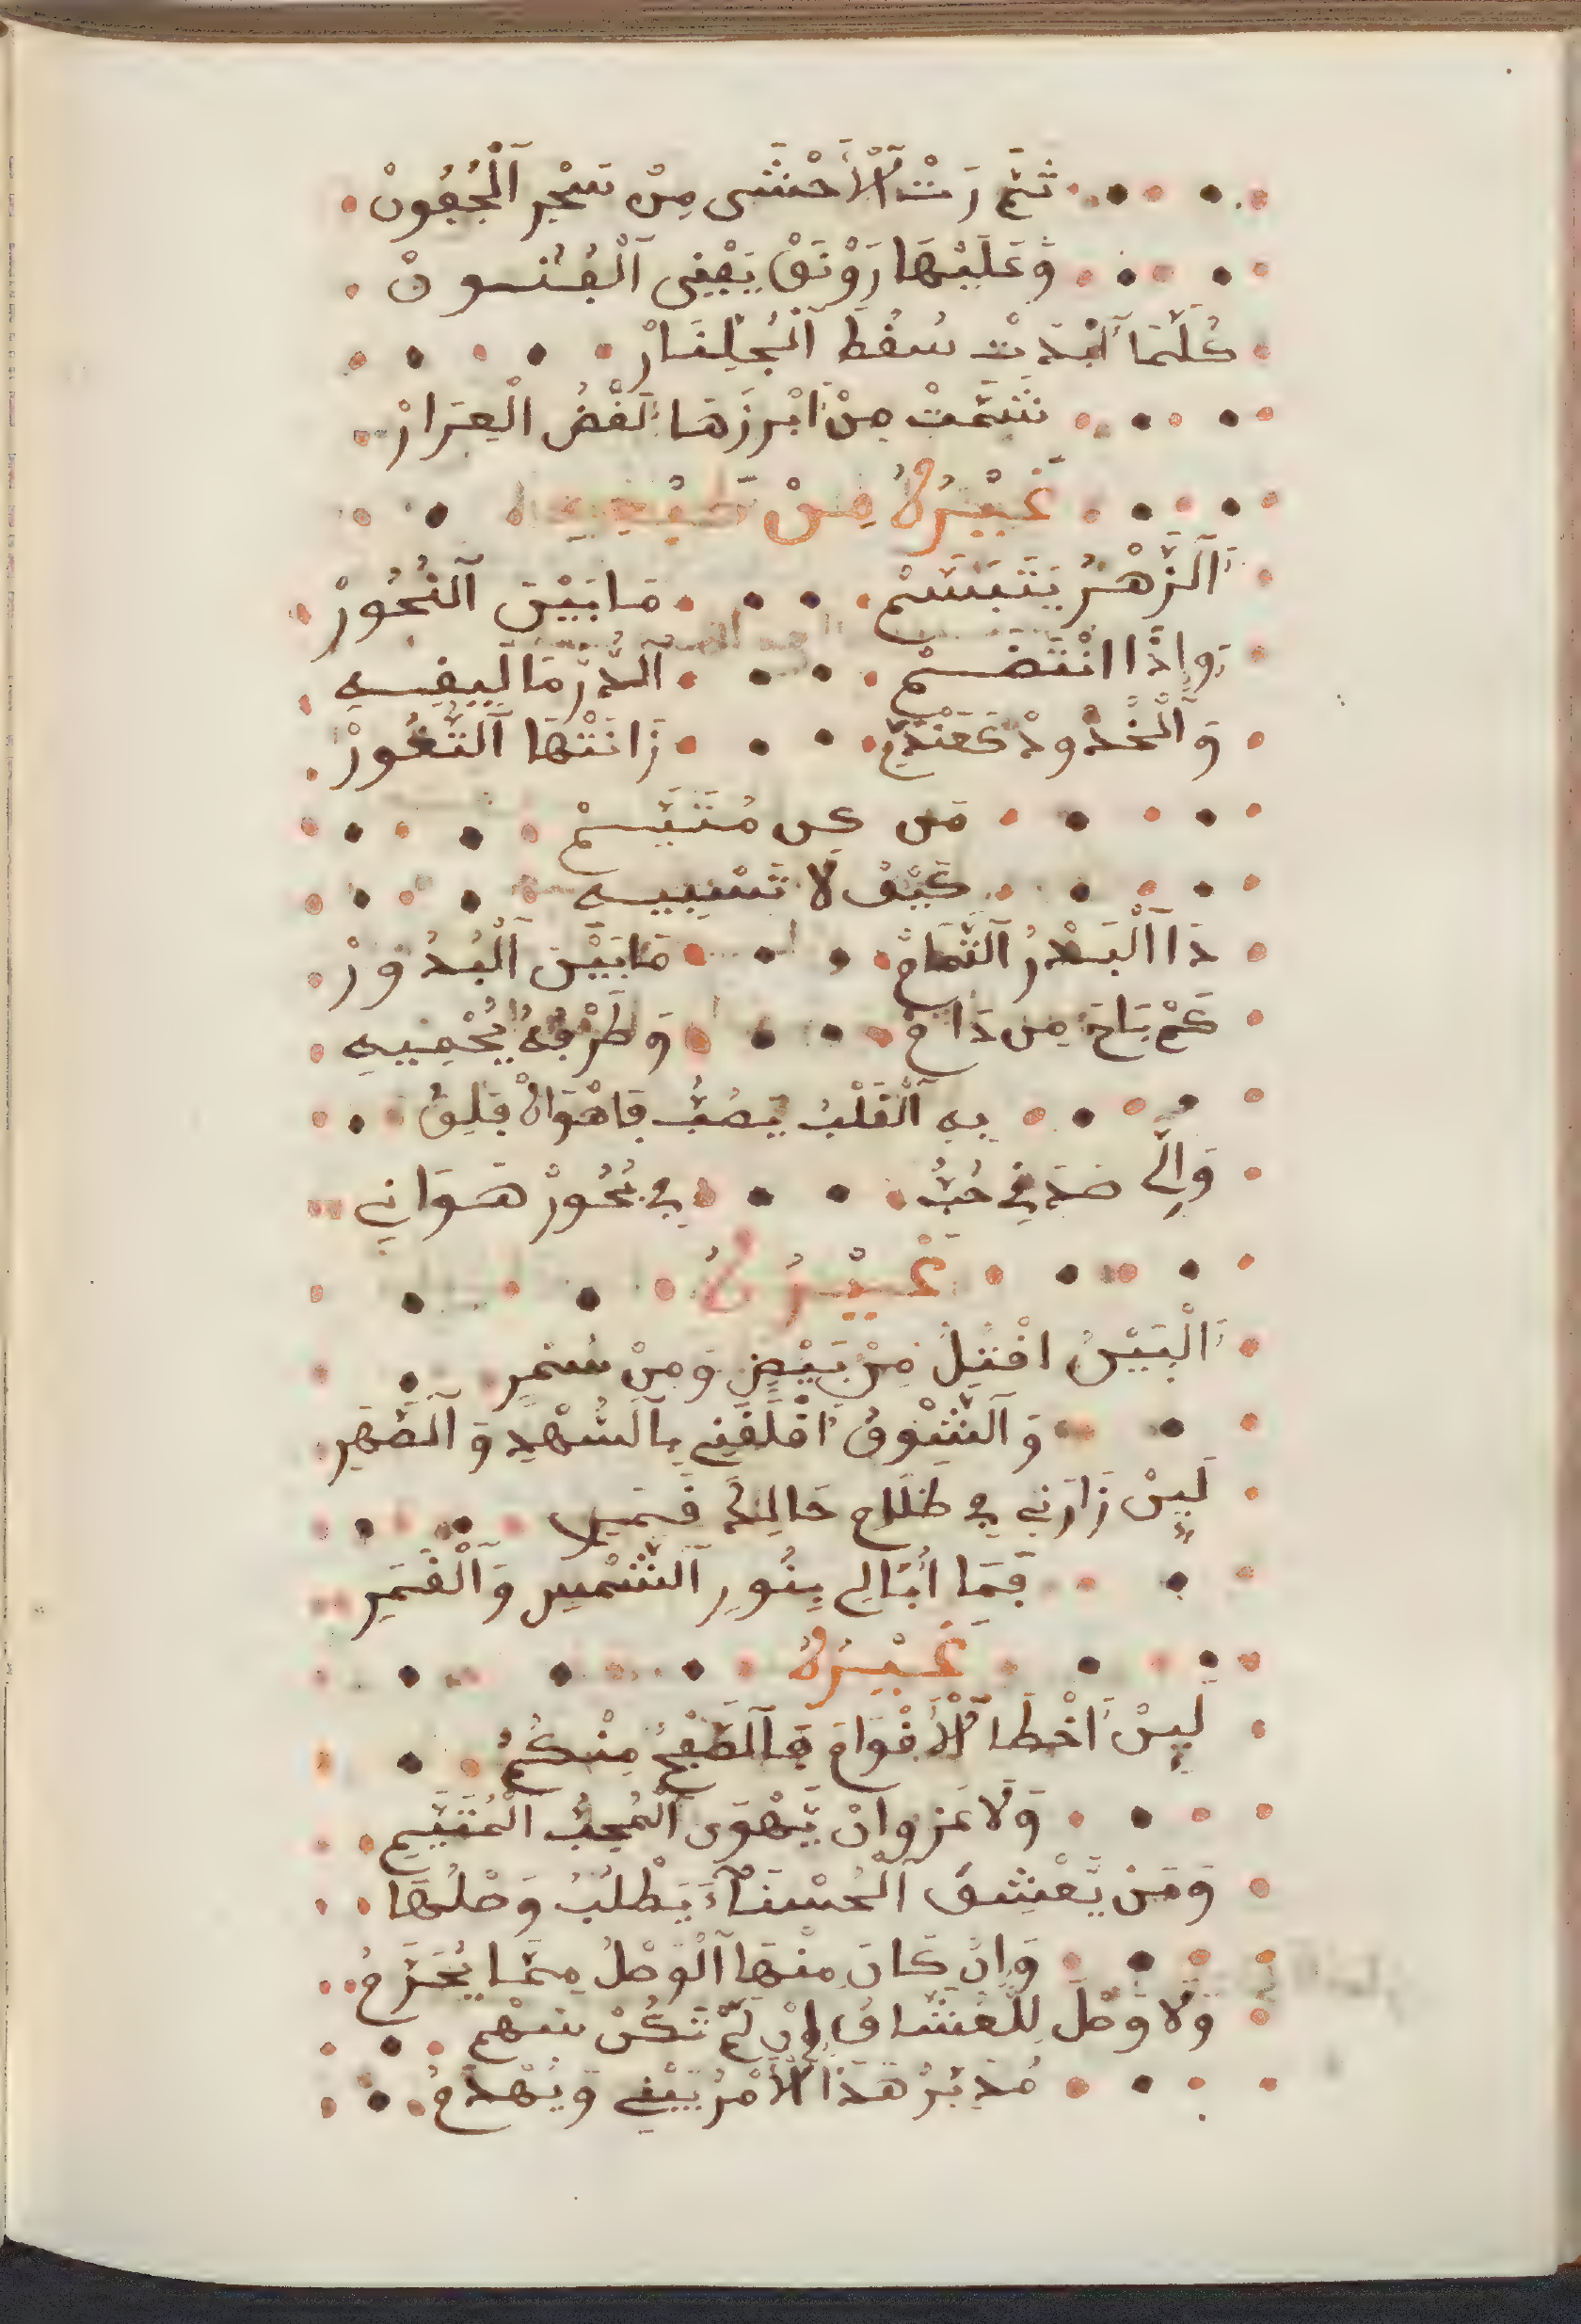 ثَمَّ رَتْ آلْأَحْشَى مِنْ سَجْرِ آلْجُفُونْ
وَعَلَيْهَا رَوْنَقْ يَفْنِي آلْفُنُسونْ
كُلَّمَا أَبْدَتْ سُقُطَ آلْجُلِّنَارْ
شَمَّتْ مِنْ ابْرزَهَا لَغْضُ الْعِرَارْ
غَيْرُهُ مِنْ
اَلزَّهْرُ يَتَبَسَّمْ مَا بَيْنَ آلنُّحُورْ
وَإِذَا انْتَضَمْ آلدُّرّ مَا لِيِفِيهِ
وَآلْخُدُودْ كَعَنْدَمْ زَانَتْهَا آلثُّغُورْ
مَن كِن مُتَيَّمْ
كَيْفْ لَا تَسْبِيِيهِ
دَا آلْبَدْرُ آلتَّمَامْ مَا بَيْنَ آلْبُدُورْ
كَمْ بَاحَ مِن دَامْ وَطَرْفُهُ يُحْمِييهِ
بِهِ آلْقَلْبُ يَصُبُّ فَاهْوَاهْ قَلِقُ
وَالِى صَدَفِي حُبُّ فِي بُحُورْ هَوَانِي
غَيْرُهُ
اَلْبَيْنُ اقْتِلُ مِنْ بَيْضٍ وَمِنْ سُمْرِ
وَآلشَّوْقُ اقْلَقَنِي بِآلسُّهْدِ وَآلضَّهَرِ
لَيِنْ زَارَنِي فِي ظَلَامِ حَالِكْ قَمَرِي
فَمَا أُبَالِي بِنُورِ آلشَّمْسِ وَآلْقَمَرِ
غَيْرُهُ
لَيِنْ اَخْطَا آلْأَقْوَامَ فَآلصَّفْحُ مِنْكُمُ
وَلَا غَرْو انْ يَّهْوَى آلْمُحِبُّ الْمُتَيَّمِ
وَمَنْ يَّعْشِقَ آلْحُسْنَآءَ يَطْلُبُ وَصْلَهَا
وَإِن كَانَ مِنْهَا آلْوَصْلُ مِمَّا يُحَرَّمُ
وَلَا وَصْلَ لِلْعُشَّاقِ إِنْ لَمْ تَكُنْ بَيْنَهُم
مُدَبِّرُ هَذَا آلْأَمْرُ يَبْنِي وَيَهْدَمُ